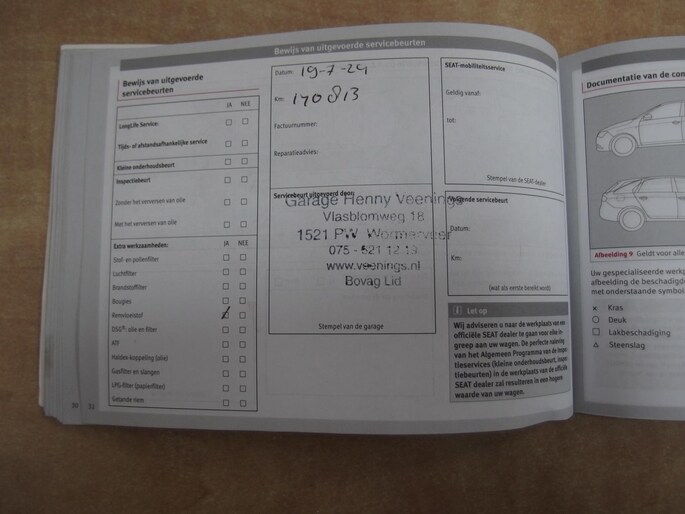 Bewijs van uitgevoerde servicebeurten
Bewijs van uitgevoerde
servicebeurten
JA NEE
LongLife Service:
Tijds- of afstandsafhankelijke service
Kleine onderhoudsbeurt
Inspectiebeurt
Zonder het verversen van olie
Met het verversen van olie
Extra werkzaamheden: JA NEE
Stof- en pollenfilter
Luchtfilter
Brandstoffilter
Bougies
Remvloeistof
DSG®- olie en filter
ATF
Haldex-koppeling (olie)
Gasfilter en slangen
LPG-filter (papierfilter)
Getande riem
Datum: 19-7-24
Km: 140 813
Factuurnummer:
Reparatieadvies:
Servicebeurt uitgevoerd door:
Garage Henny Veenings
Vlasblomweg 18
1521 PW Wormerveer
075 - 621 12 19
www.veenings.nl
Bovag Lid
Stempel van de garage
SEAT-mobiliteitsservice
Geldig vanaf:
tot:
Stempel van de SEAT-dealer
Volgende servicebeurt
Datum:
Km:
(wat als eerste bereikt word)
i Let op
Wij adviseren u naar de werkplaats van een
officiële SEAT dealer te gaan voor elke in-
greep aan uw wagen. De perfecte naleving
van het Algemeen Programma van de inspec-
tieservices (kleine onderhoudsbeurt, inspec-
tiebeurten) in de werkplaats van de officiële
SEAT dealer zal resulteren in een hogere
waarde van uw wagen.
Documentatie van de con
Afbeelding 9 Geldt voor alle
Uw gespecialiseerde werkp
afbeelding de beschadigd
met onderstaande symbol
× Kras
○ Deuk
□ Lakbeschadiging
△ Steenslag